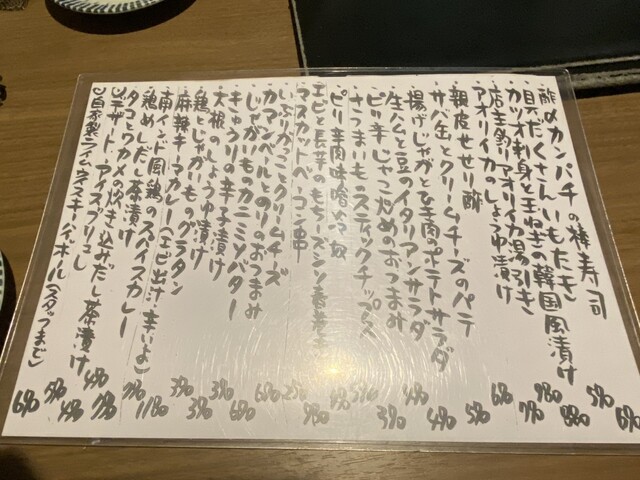 ・酢〆カンパチの棒寿司 690
・具だくさんいもたき 590
・カツオ刺身と玉ねぎの韓国風漬け 880
・店主釣りアオリイカ湯引き 980
・アオリイカのしょうゆ漬け 790
・親皮せせり酢 590
・サバ缶とクリームチーズのパテ 490
・揚げじゃがとひき肉のポテトサラダ 490
・生ハムと豆のイタリアンサラダ
・ピリ辛じゃこ炒めのおつまみ 390
・さつまいものスティックチップス
・ピリ辛肉味噌やっこ
・エビと長芋のもちチーズシソ春巻き 980
・マスカットベーコン串 250
・いぶりがっことクリームチーズ
・カマンベールとのりのおつまみ 690
・じゃがいものカニミソバター 690
・きゅうりの辛子漬け 390
・大根のしょうゆ漬け 390
・鶏とじゃがいものグラタン
・麻辣牛マカレー(エビ出汁 辛いよ) 1180
・南インド風鶏のスパイスカレー
・鶏めしだし茶漬け
・タコとワカメの炊き込みだし茶漬け
・デザート・アイスブリュレ
自家製ライムウイスキーハイボール(スタッフまで) 690